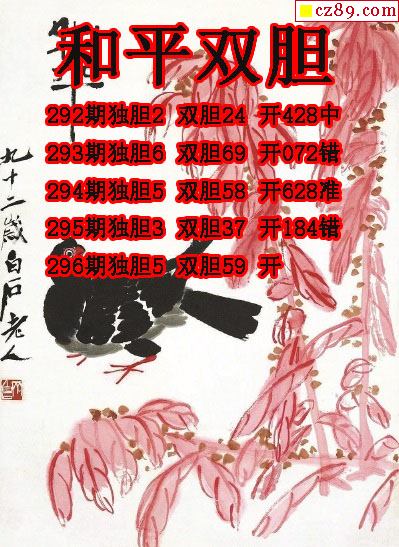 cz89.com
和平双胆
292期独胆2 双胆24 开428中
293期独胆6 双胆69 开072错
294期独胆5 双胆58 开628准
295期独胆3 双胆37 开184错
296期独胆5 双胆59 开
九十二岁白石老人